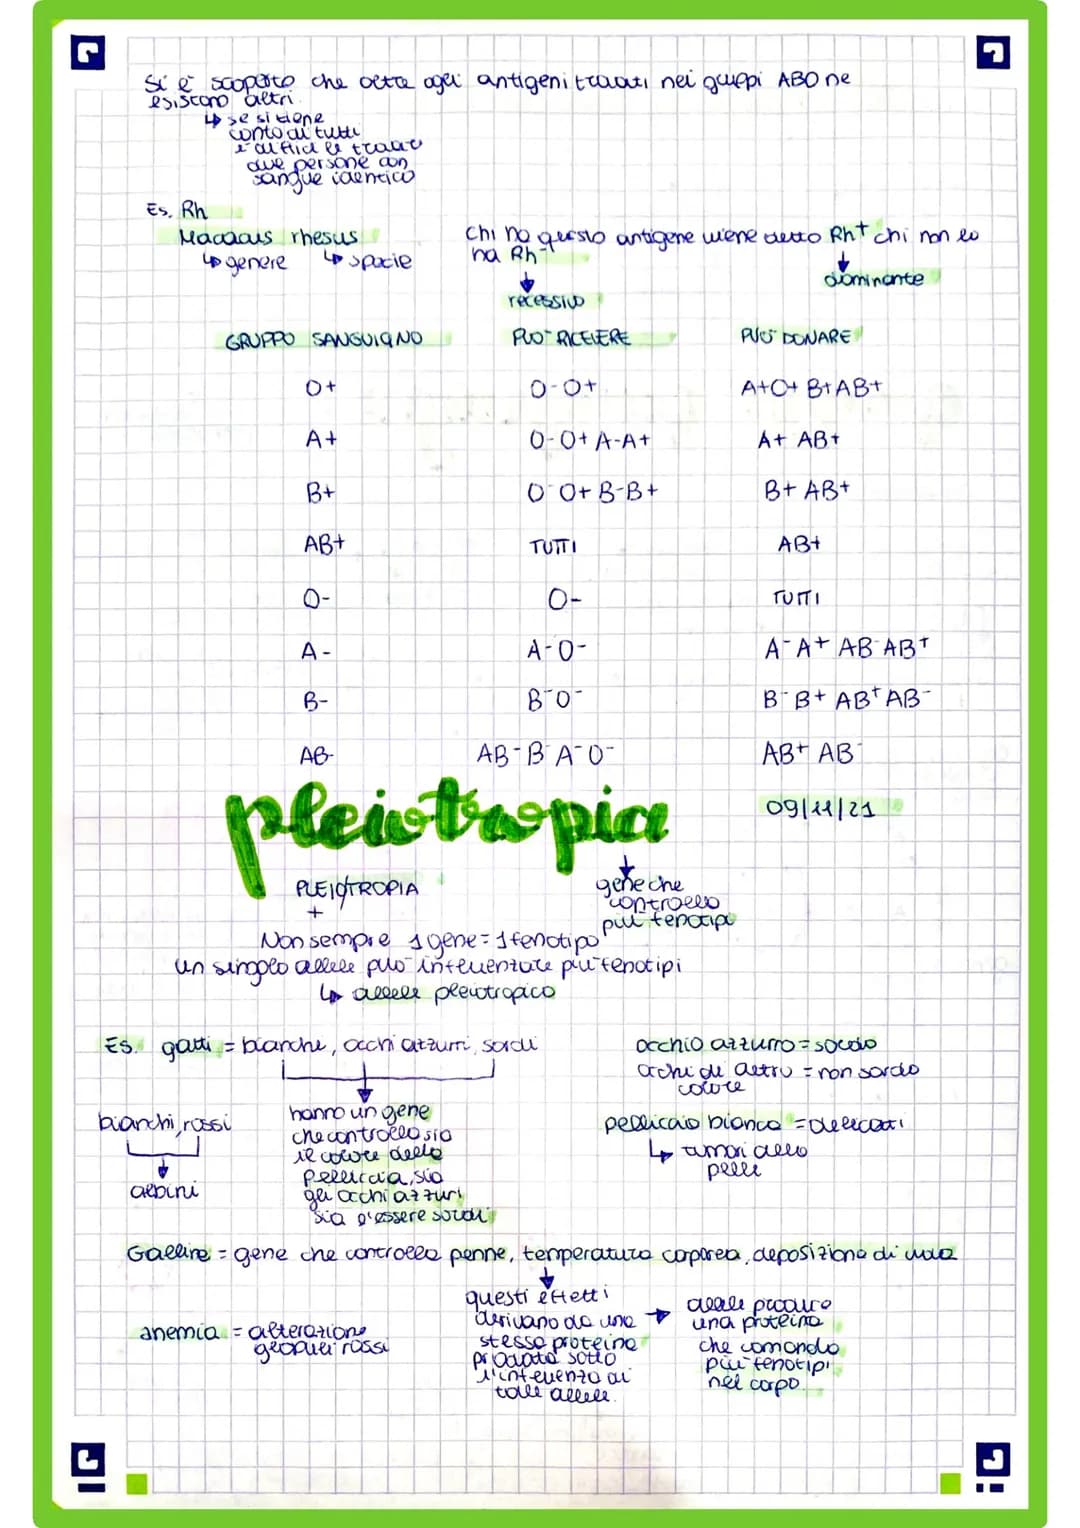 Si è scoperto che oltre agli antigeni trovati nei gruppi ABO ne
esistono altri
↳ se si tiene
conto di tutti
è difficile trovare
due persone con
sangue identico
Es. Rh
Macacus rhesus
↳ genere ↳ specie
Chi ha questo antigene viene detto Rh+ chi non lo
ha Rh-
↓ recessivo
↓ dominante
GRUPPO SANGUIGNO PUO' RICEVERE PUO' DONARE
O+ O-O+ A+O+ B+AB+
A+ O-O+ A-A+ A+ AB+
B+ O-O+ B-B+ B+ AB+
AB+ TUTTI AB+
O- O- TUTTI
A- A-O- A-A+ AB-AB+
B- B-O- B-B+ AB+AB-
AB- AB-B-A-O- AB+ AB-
pleiotropia 09/11/21
↓
gene che
controlla
più fenotipi
PLEIOTROPIA
+
Non sempre 1 gene = 1 fenotipo
un singolo allele può influenzare più fenotipi
↳ allele pleiotropico
Es. gatti = bianche, occhi azzurri, sordi
bianchi, rossi
↓
albini
hanno un gene
che controlla sia
il colore della
pelliccia, sia
gli occhi azzuri
sia l'essere sordi
occhio azzurro = sordo
occhi di altro = non sordo
colore
pelliccia bianca = delicati
↳ tumori alla
pelle
Galline = gene che controlla penne, temperatura corporea, deposizione di uova
↓
questi effetti
derivano da una →
stessa proteina
prodotta sotto
l'influenza di
tale allele.
allele produce
una proteina
che comanda
più fenotipi
nel corpo
anemia = alterazione
globuli rossi